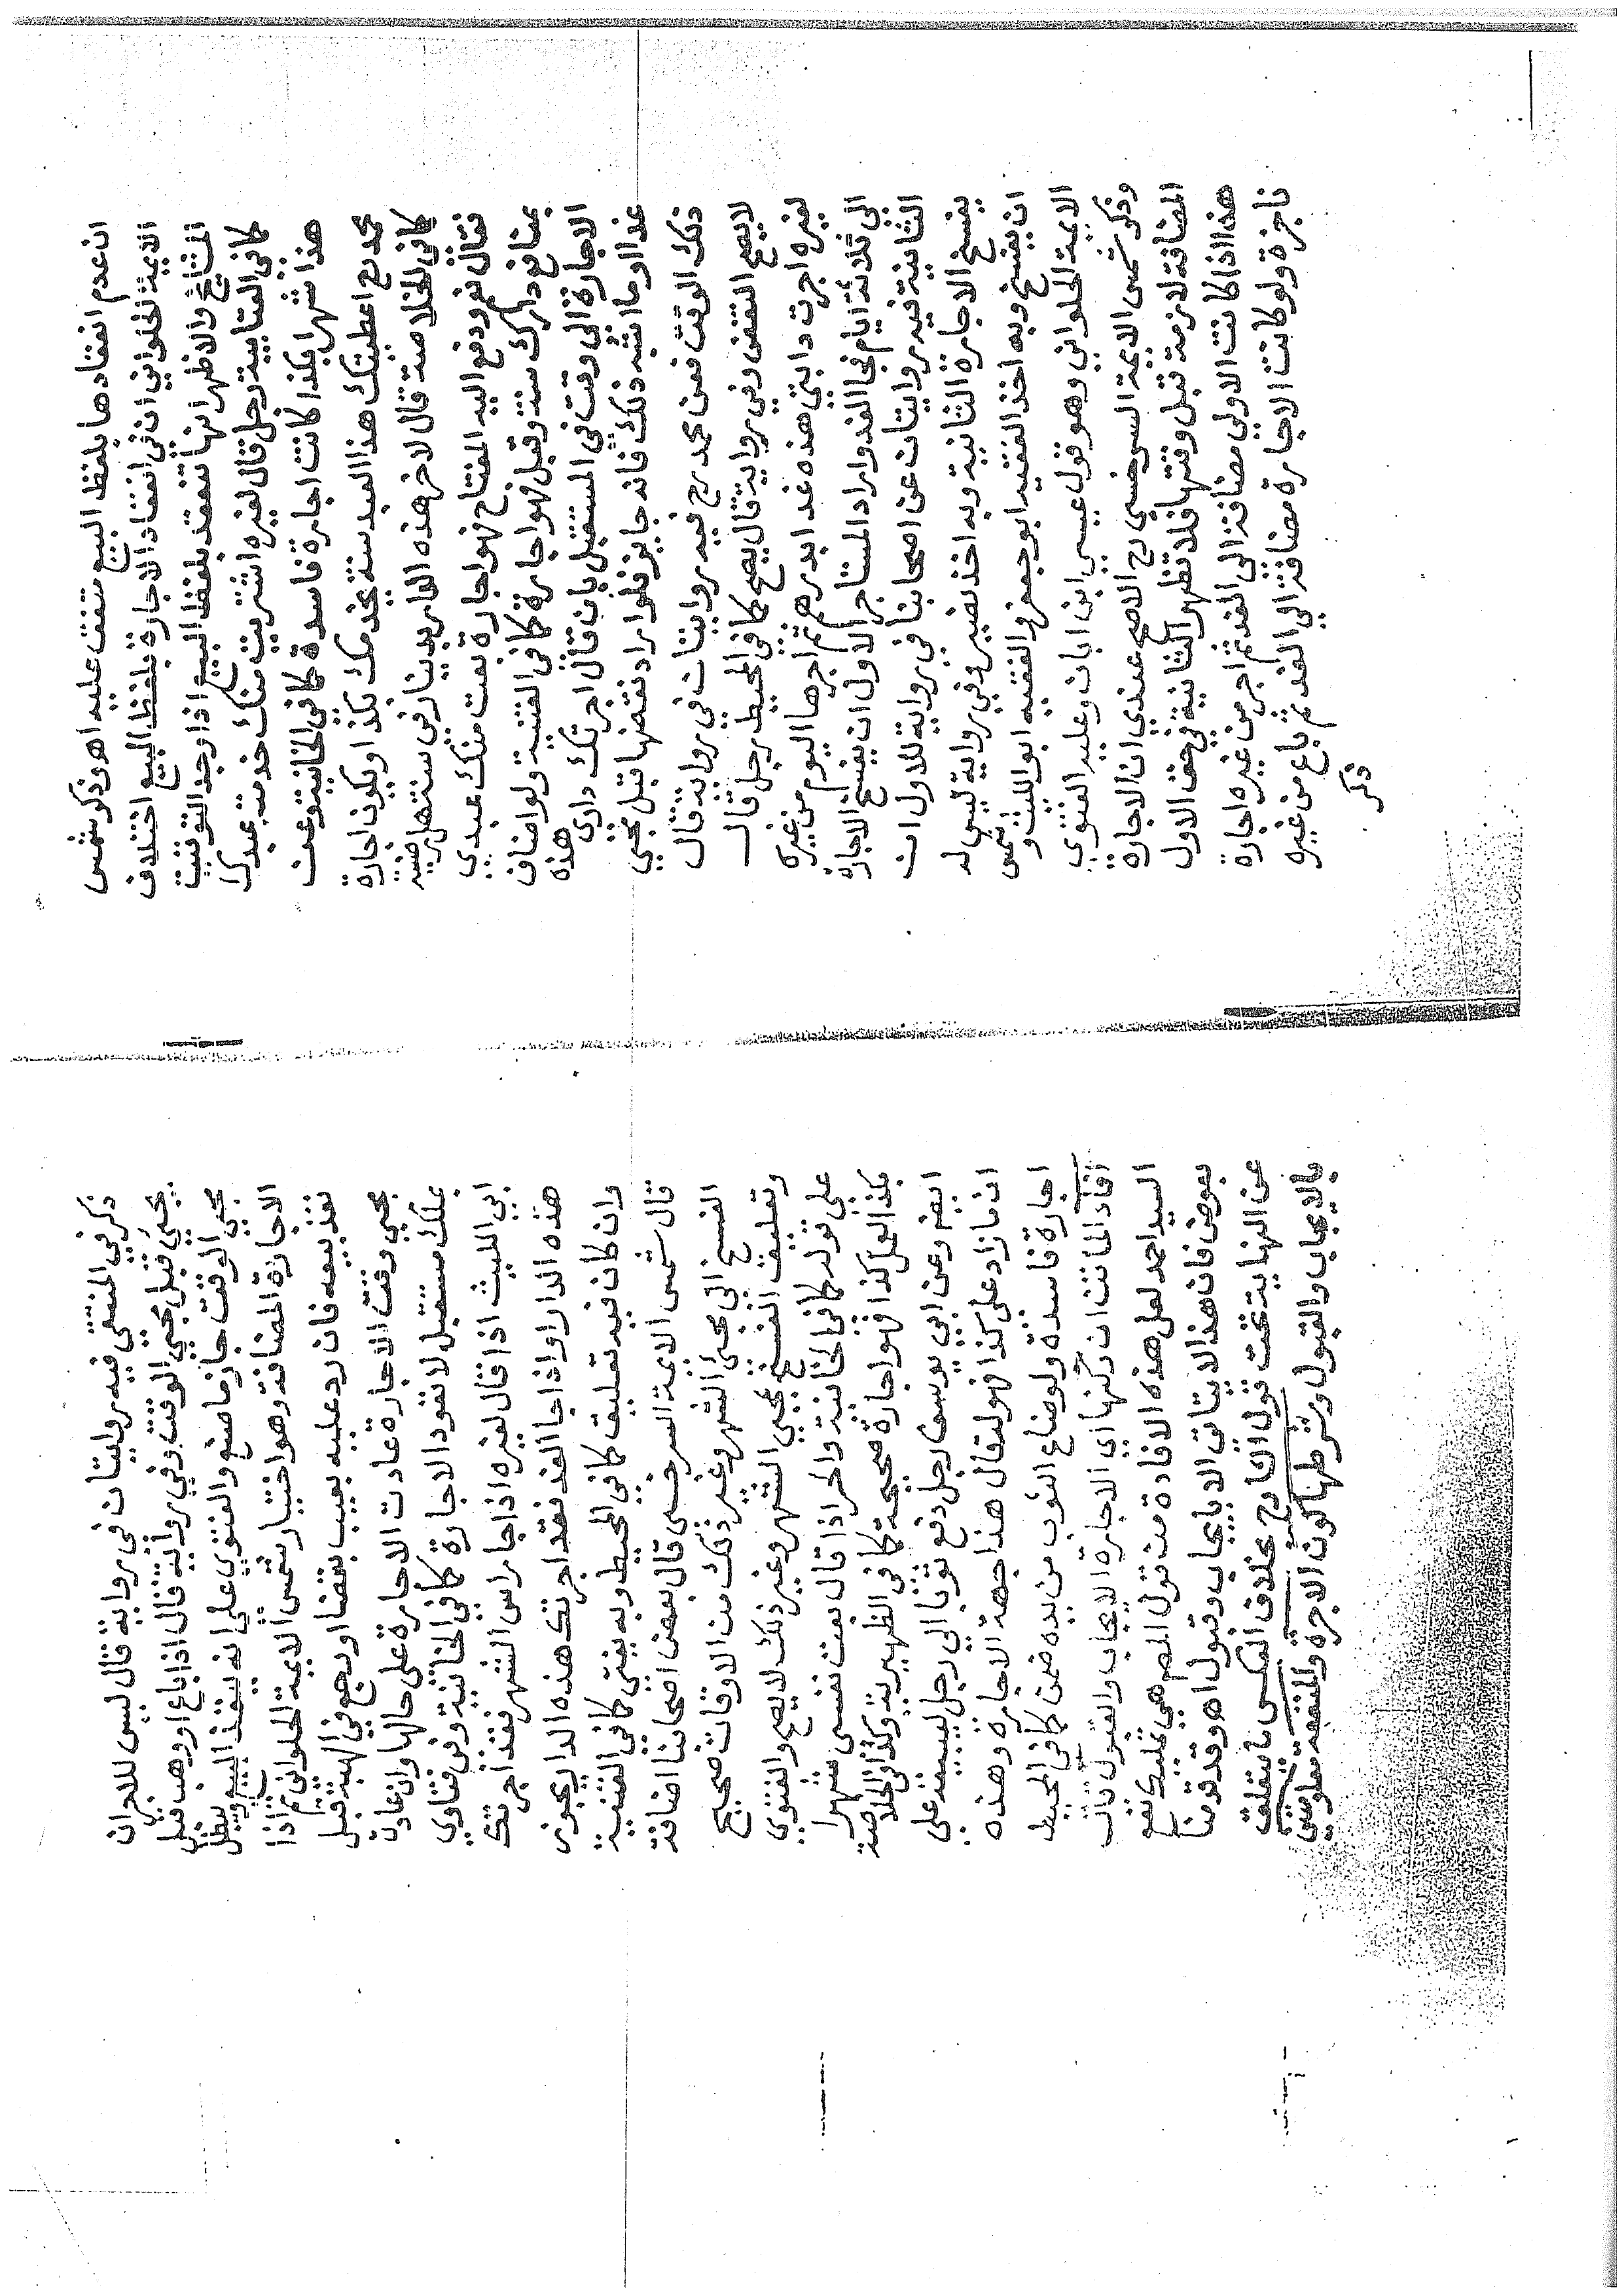 ان عدم انعقادها بلفظ البيع متفق عليه اهو ذكر شمس
الايمة الحلواني ان في انعقاد الاجارة بلفظ البيع اختلاف
المشايخ والاظهر انها تنعقد بلفظ البيع اذا وجد التوقيت
كما في العتابية رجل قال لغيره اشتريت منك خدمة عبدك
هذا شهرا بكذا كانت اجارة فاسدة كما في الخانية وعن
محمد رح اعطيتك هذا العبد سنة يخدمك بكذا ويكون اجارة
كما في الخلاصة قال لاخر هذه الدار بدينار في سنة هل رضيت
فقال نعم ودفع اليه المفتاح فهو اجارة بعت منك عبدي
بمنافع دارك سنة وقبل فهو اجارة كما في القنية ولو اضاف
الاجارة الى وقت في المستقبل بان قال اجرتك داري هذه
غدا او ما اشبه ذلك فانه جايز فلو اراد نقضها قبل مجئ
ذلك الوقت فعن محمد رح فيه روايتان في رواية قال
لا يصح النقض وفي رواية قال يصح كما في المحيط رجل قال
لغيره اجرت دابتي هذه غدا بدرهم ثم اجرها اليوم من غيره
الى ثلاثة ايام فجا الغد واراد المستاجر الاول ان يفسخ الاجارة
الثانية فيه روايتان عن اصحابنا في رواية للاول ان
يفسخ الاجارة الثانية وبه اخذ نصير وفي رواية ليس له
ان يفسخ وبه اخذ الفقيه ابو جعفر والفقيه ابو الليث وشمس
الايمة الحلواني وهو قول عيسى ابن ابان وعليه الفتوى
وذكر شمس الايمة السرخسي رح الاصح عندي ان الاجارة
المضافة لازمة قبل وقتها فلا تظهر الثانية في حق الاول
هذا اذا كانت الاولى مضافة الى الغد ثم اجر من غيره اجارة
ناجزة ولو كانت الاجارة مضافة الى الغد ثم باع من غيره
ذكر
ذكر في المنتقى فيه روايتان في رواية قال ليس للاجر ان
يبيع قبل مجئ الوقت وفي رواية قال اذا باع او وهب قبل
مجئ الوقت جاز ما صنع والفتوى على انه ينفذ البيع وتبطل
الاجارة المضافة وهو اختيار شمس الايمة الحلواني ثم اذا
نفذ بيعه فان رد عليه بعيب بقضا او رجع في الهبة قبل
مجئ وقت الاجارة عادت الاجارة على حالها وان عاد
بملك مستقبل لا تعود الاجارة كما في الخانية وفي فتاوي
ابي الليث اذا قال لغيره اذا جا راس الشهر فقد اجرتك
هذه الدار او اذا جا الغد فقد اجرتك هذه الدار يجوز
وان كان فيه تعليق كما في المحيط وبه يفتى كما في القنية
قال شمس الايمة السرخسي قال بعض اصحابنا اضافة
الفسخ الى مجئ الشهر وغير ذلك من الاوقات صحيح
وتعليق الفسخ بمجئ الشهر وغير ذلك لا يصح والفتوى
على قوله كما في الخانية والحر اذا قال بعت نفسي شهرا
بكذا لعمل كذا فهو اجارة صحيحة كما في الظهيرية وكذا في الخلاصة
اليهم وعن ابي يوسف رجل دفع ثوبا الى رجل ليبيعه على
ان ما زاد على كذا فهو له قال هذا جهة الاجارة وهذه
اجارة فاسدة ولو ضاع الثوب من يده ضمن كما في المحيط
افاد الماتن ان ركنها اي الاجارة الايجاب والقبول قال
السيد احمد لعل هذه الافادة من قول المصـ هي تمليك نفع
بعوض فان هذا لا يتاتى الا بايجاب وقبول اهو وقد قدمنا
عن النهاية تحت قول الشارح بخلاف العكس ما يتعلق
بالايجاب والقبول وشرطها كون الاجرة والمنفعة معلومتين